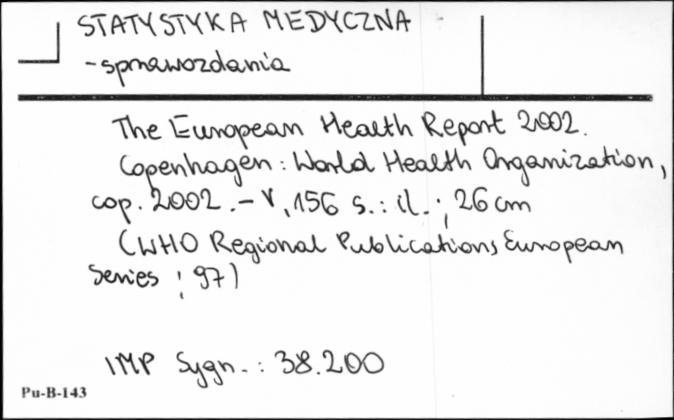 STATYSTYKA MEDYCZNA
- sprawozdania
The European Health Report 2002.
Copenhagen : World Health Organization,
cop. 2002. - V, 156 s. : il. ; 26 cm
(WHO Regional Publications European
Series ; 97)
IMP Sygn. : 38.200
Pu-B-143